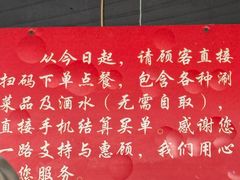 从今日起，请顾客直接
扫码下单点餐，包含各种涮
菜品及酒水（无需自取），
直接手机结算买单 感谢您
一路支持与惠顾，我们用心
您服务